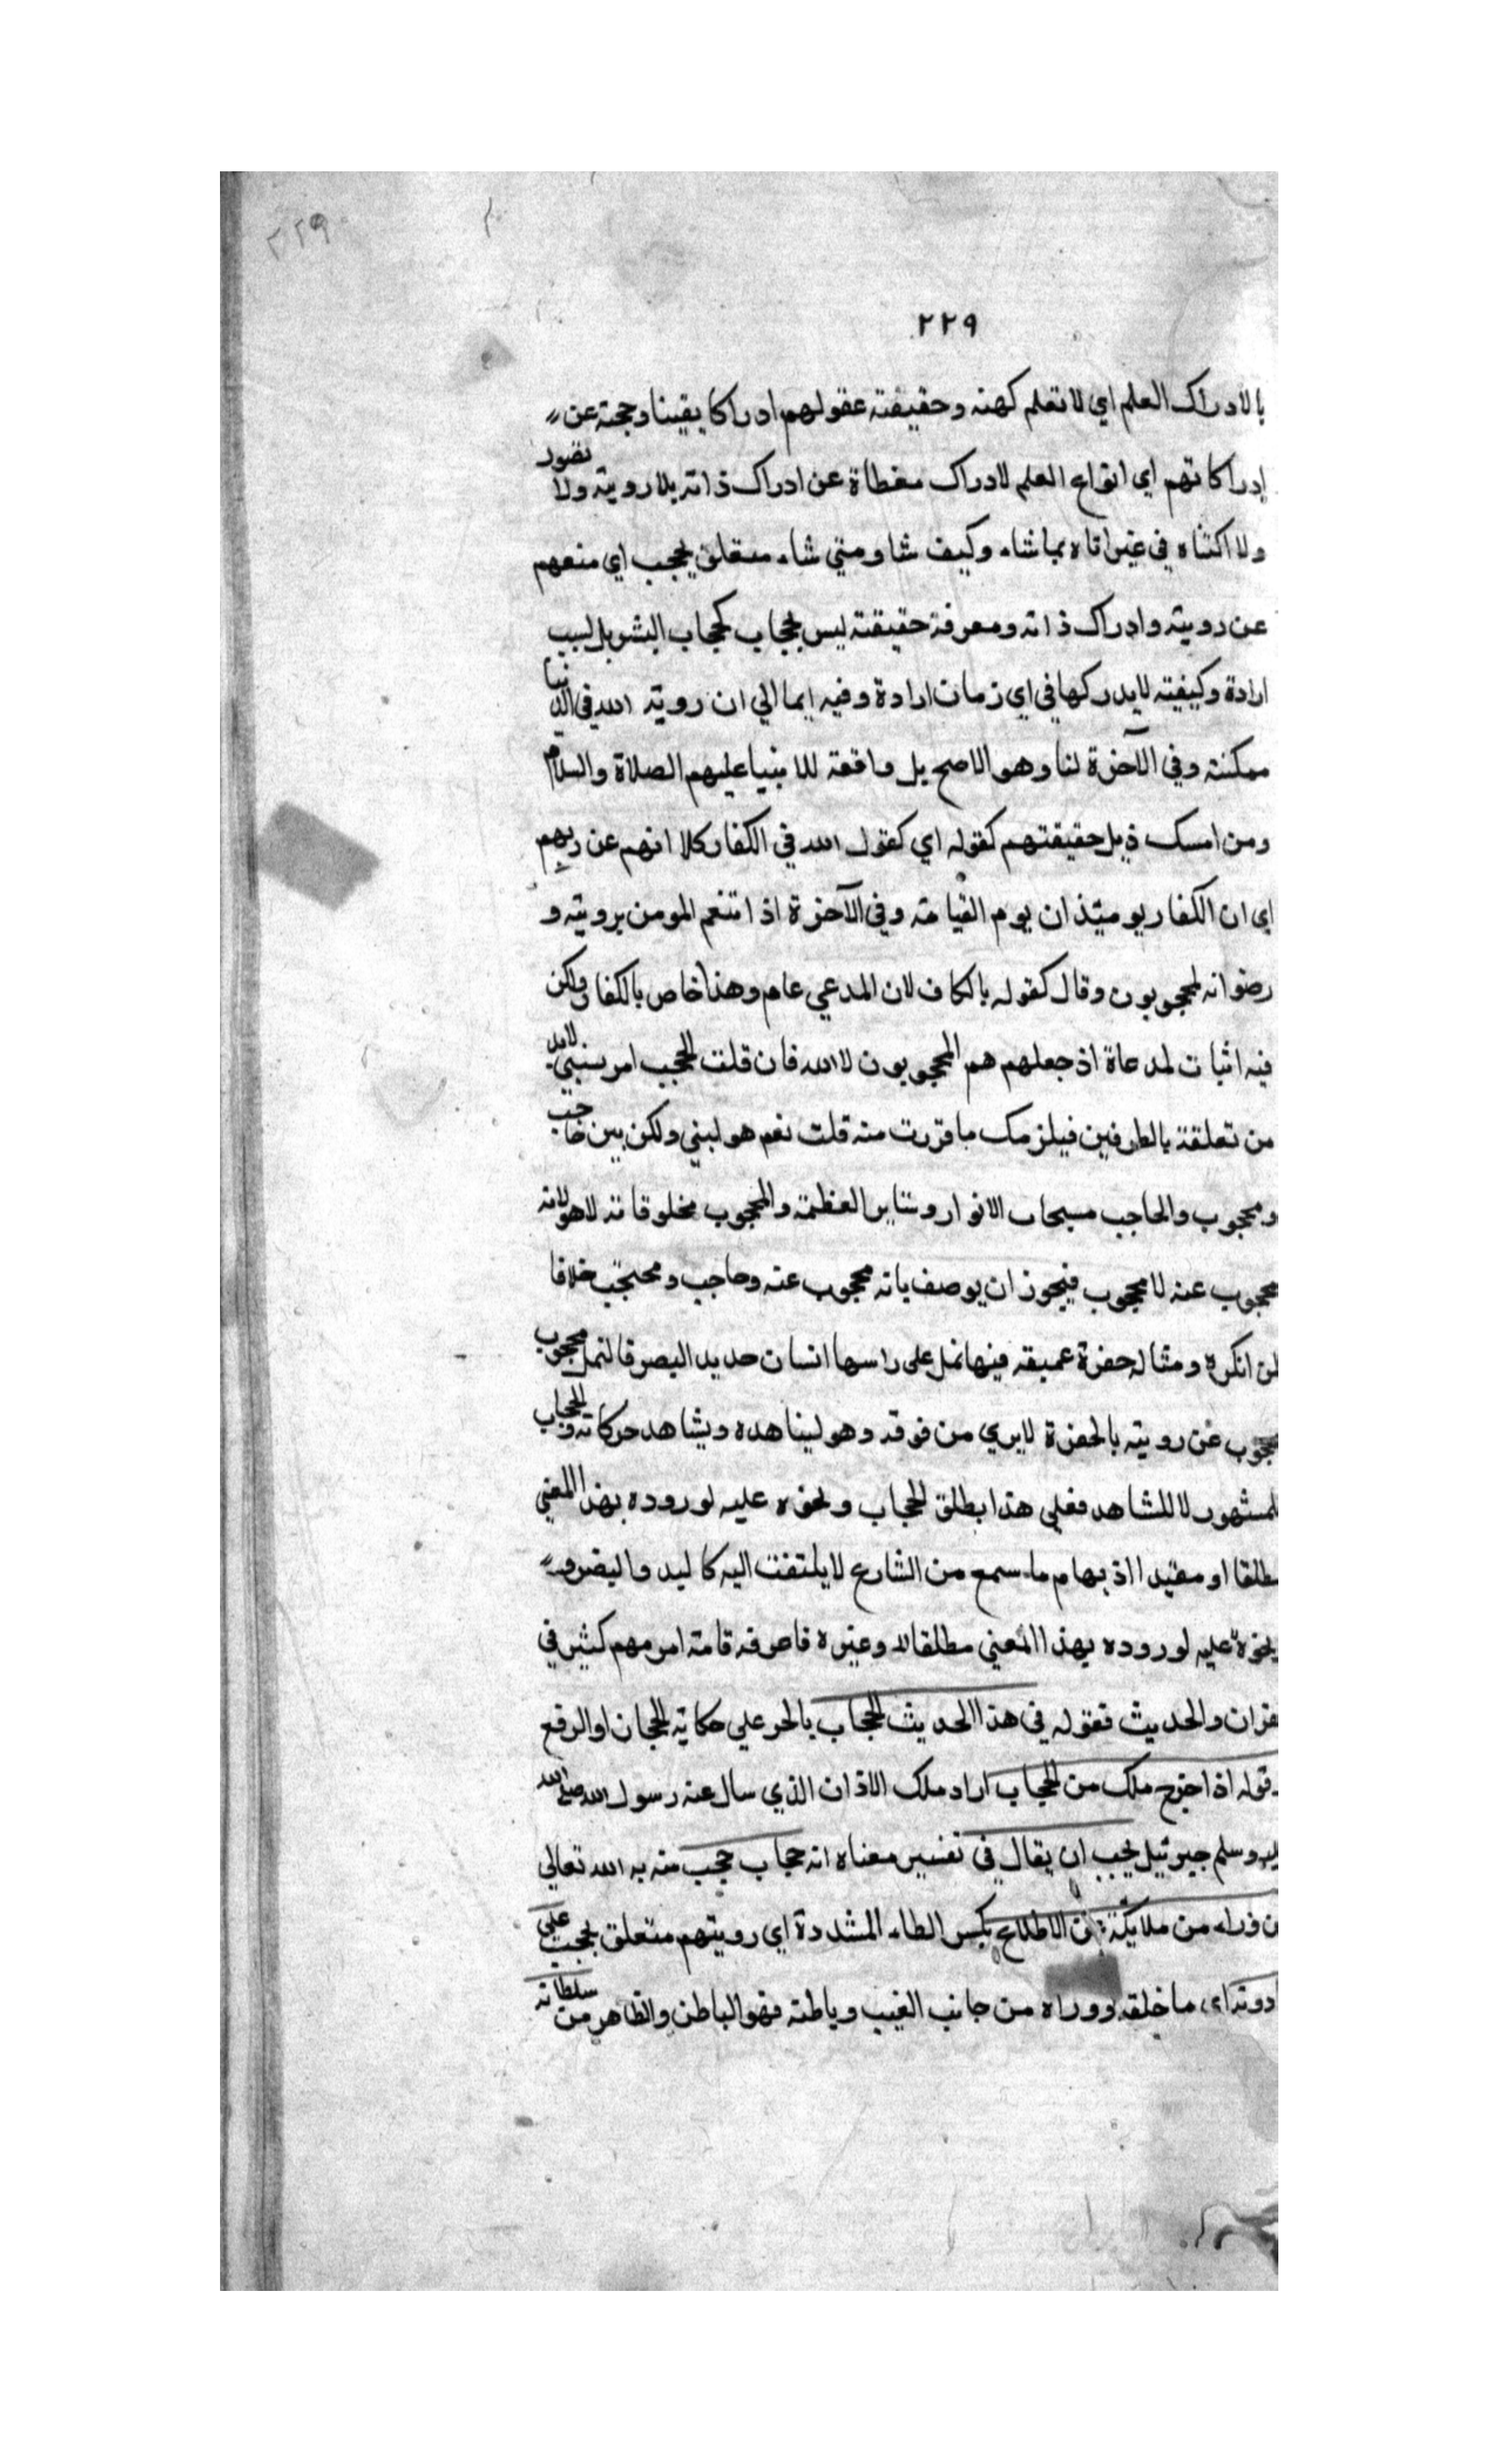 ٢٢٩
٢٢٩
بالادراك العلم اي لا تعلم كهنه وحقيقته عقولهم ادراكا يقينا وحجته عن
إدراكاتهم اي انواع العلم لادراك مغطاة عن ادراك ذاته بلا روية ولا تصور
ولا اكتناه في غير اتاه بما شاء وكيف شا ومتي شاء متعلق بحجب اي منعهم
عن رويته وادراك ذاته ومعرفة حقيقته ليس بحجاب كحجاب البشر بل لسبب
ارادة وكيفيته لا يدركها في اي زمان ارادة وفيه ايما الي ان روية الله في الدنيا
ممكنة وفي الآخرة لنا وهو الاصح بل واقعة للانبيا عليهم الصلاة والسلام
ومن امسك ذيل حقيقتهم كقوله اي كقول الله في الكفار كلا انهم عن ربهم
اي ان الكفار يوميئذ ان يوم القيامة وفي الآخرة اذا تنعم المومن برويته و
رضوانه لمحجوبون وقال كقوله بالكاف لان المدعي عام وهذا خاص بالكفار ولكن
فيه اثبات لمدعاة اذ جعلهم هم المحجوبون لا الله فان قلت الحجب امر نسبي لابد
من تعلقة بالطرفين فيلزمك ما قررت منه قلت نعم هو لبني ولكن بين حاجب
ومحجوب والحاجب سبحات الانوار وستاير العظمة والمحجوب مخلوقاته لا هو لانه
محجوب عنه لا محجوب فيجوز ان يوصف بانه محجوب عنه وحاجب ومحتجب خلافا
لمن انكره ومثاله حفرة عميقه فيها نمل على راسها انسان حديد البصر فالنمل محجوب
محجوب عن رويته بالحفرة لا يري من فوقه وهو ليناهده ويشاهد حركاته والحجاب
لمشهور لا للشاهد فعلي هذا يطلق الحجاب ونحوه عليه لوروده بهذا المعني
مطلقا او مقيدا اذ بهام ما سمع من الشارع لا يلتفت اليه كاليد واليضر و
نحوه عليه لوروده بهذا المعني مطلقا له وغيره فاعرفه قامته امر مهم كثير في
لقران والحديث فقوله في هذا الحديث الحجاب بالحر علي حكاية الحجان او الرفع
وقوله اذا خرج ملك من الحجاب اراد ملك الاذان الذي سال عنه رسول الله صلى الله
عليه وسلم جبرئيل يجب ان يقال في تفسير معناه انه حجاب حجب منه به الله تعالي
من وراءه من ملايكته عن الاطلاع بكسر الطاء المشددة اي رويتهم متعلق بحجب علي
دونه اي ما خلقه ووراه من جانب الغيب وباطنه فهو الباطن والظاهر من سلطانه